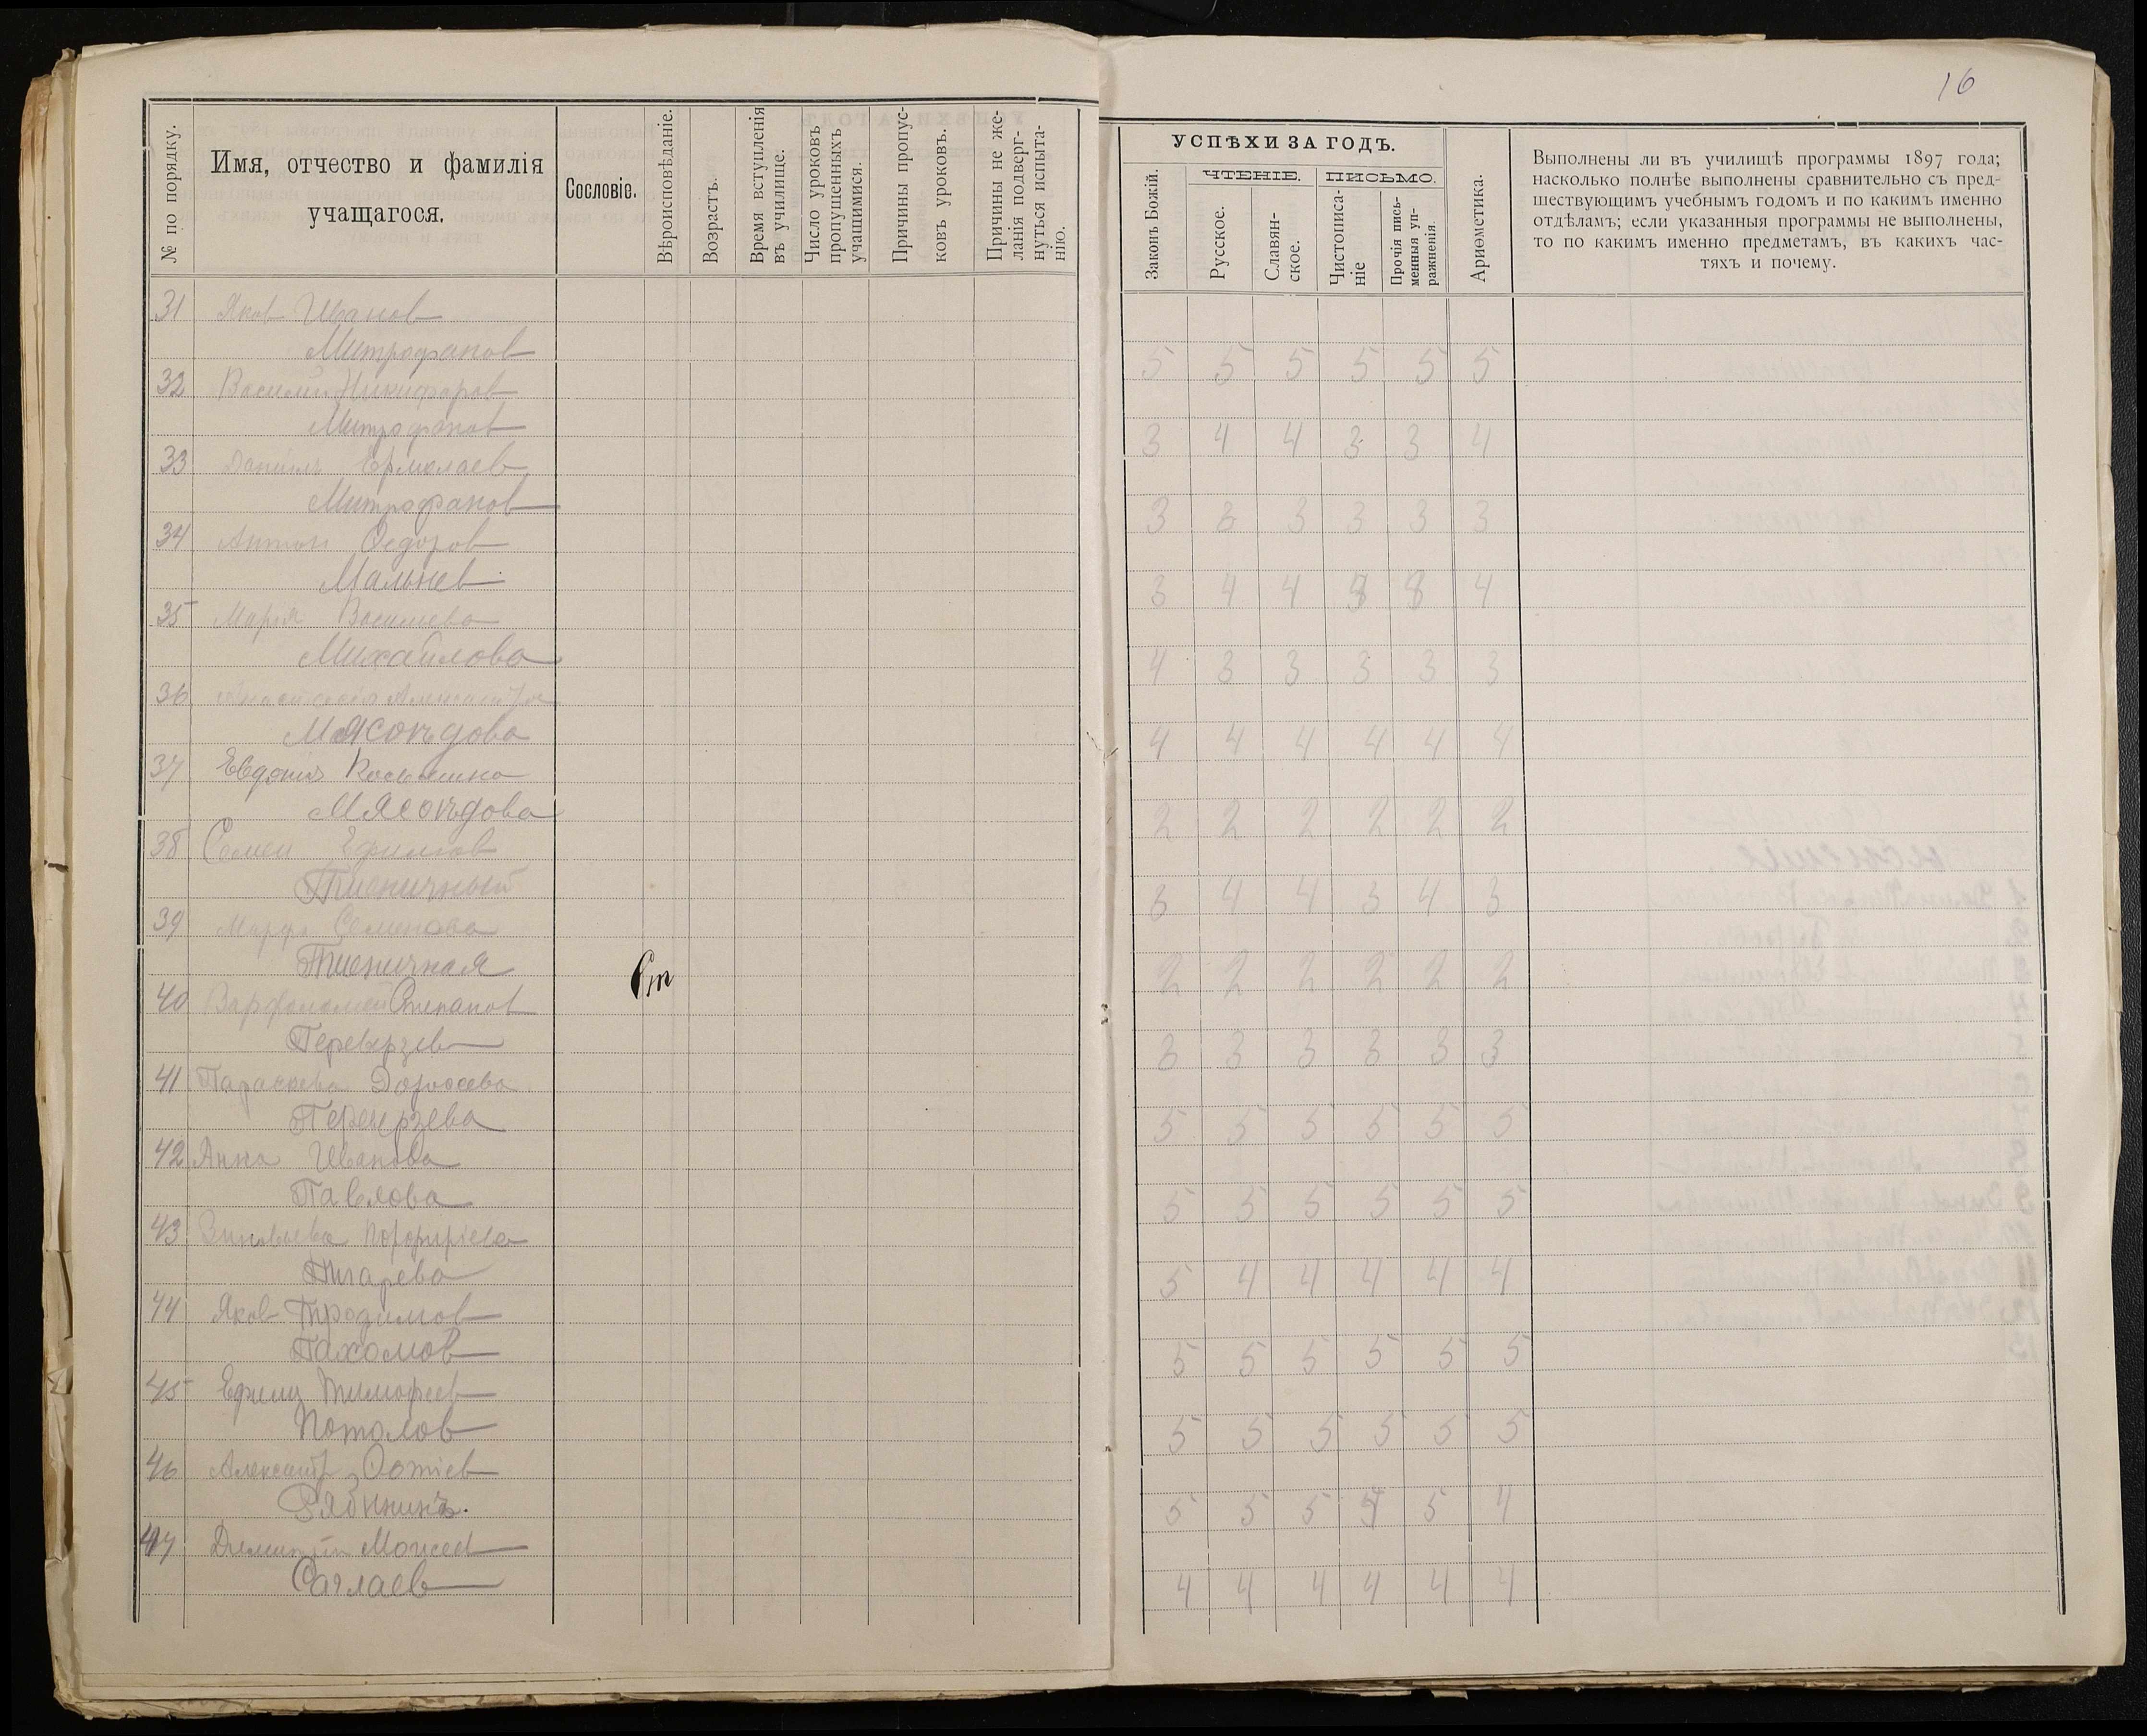 16
№ по порядку.
Имя, отчество и фамилія
учащагося.
Сословіе.
Вѣроисповѣданіе.
Возрастъ.
Время вступленія
въ училище.
Число уроковъ
пропущенныхъ
учащимися.
Причины пропус-
ковъ уроковъ.
Причины не же-
ланія подверг-
нуться испыта-
нію.
УСПѢХИ ЗА ГОДЪ.
Законъ Божій.
ЧТЕНІЕ.
Русское.
Славян-
ское.
ПИСЬМО.
Чистописа-
ніе
Прочія пись-
менныя уп-
ражненія.
Ариѳметика.
Выполнены ли въ училищѣ программы 1897 года;
насколько полнѣе выполнены сравнительно съ пред-
шествующимъ учебнымъ годомъ и по какимъ именно
отдѣламъ; если указанныя программы не выполнены,
то по какимъ именно предметамъ, въ какихъ час-
тяхъ и почему.
31 Яков Иванов
Митрофанов 5 5 5 5 5 5
32 Василий Никифоров
Митрофанов 3 4 4 3 3 4
33 Даниил Ермолаев
Митрофанов 3 3 3 3 3 3
34 Антон Федоров
Мальнев 3 4 4 3 4
35 Мария Василиева
Михайлова 4 3 3 3 3 3
36
Мясоѣдова 4 4 4 4 4 4
37 Евдокия
Мясоѣдова 2 2 2 2 2 2
38 Семен Ефимов
Пшеничный 3 4 4 3 4 3
39 Марфа Семенова
Пшеничная 2 2 2 2 2 2
40 Варфоломей Степанов
Переверзев 3 3 3 3 3 3
41 Параскева
Переверзева 5 5 5 5 5 5
42 Анна Иванова
Павлова 5 5 5 5 5 5
43 Порфиріева
Пигарева 5 4 4 4 4 4
44 Яков Трофимов
Пахомов 5 5 5 5 5 5
45 Ефим Тимофеев
Потолов 5 5 5 5 5 5
46 Александр Фотіев
Рябининъ. 5 5 5 5 4
47 Димитрій Моисеев
Саглаев 4 4 4 4 4 4